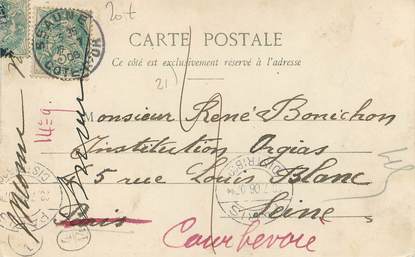 BEAUNE
COTE-D'OR
20t
CARTE POSTALE
Ce côté est exclusivement réservé à l'adresse
21)
Monsieur René Bonichon
Institution Orgias
5 rue Louis Blanc
Paris
Seine
Courbevoie